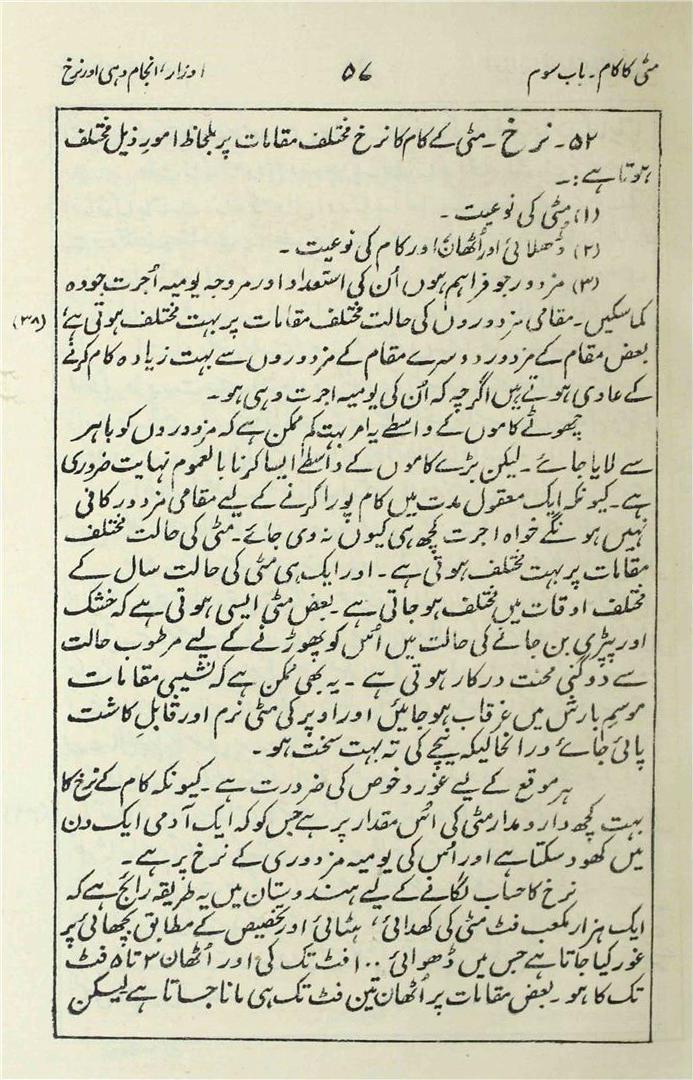 مٹی کا کام۔ باب سوم
۵۶
اوزار، انجام دہی اور نرخ
۵۲۔ نرخ۔ مٹی کے کام کا نرخ مختلف مقامات پر بلحاظ امورِ ذیل مختلف
ہوتا ہے:۔
(۱) مٹی کی نوعیت۔
(۲) ڈھلائی اور اُٹھان اور کام کی نوعیت۔
(۳) مزدور جو فراہم ہوں اُن کی استعداد اور مروجہ یومیہ اُجرت جو وہ
کما سکیں۔ مقامی مزدوروں کی حالت مختلف مقامات پر بہت مختلف ہوتی ہے
(۳۸)
بعض مقام کے مزدور دوسرے مقام کے مزدوروں سے بہت زیادہ کام کرنے
کے عادی ہوتے ہیں اگرچہ کہ اُن کی یومیہ اجرت وہی ہو۔
چھوٹے کاموں کے واسطے یہ امر بہت کم ممکن ہے کہ مزدوروں کو باہر
سے لایا جائے۔ لیکن بڑے کاموں کے واسطے ایسا کرنا بالعموم نہایت ضروری
ہے۔ کیونکہ ایک معقول مدت میں کام پورا کرنے کے لیے مقامی مزدور کافی
نہیں ہونگے خواہ اجرت کچھ ہی کیوں نہ دی جائے۔ مٹی کی حالت مختلف
مقامات پر بہت مختلف ہوتی ہے۔ اور ایک ہی مٹی کی حالت سال کے
مختلف اوقات میں مختلف ہو جاتی ہے۔ بعض مٹی ایسی ہوتی ہے کہ خشک
اور پپڑی بن جانے کی حالت میں اُس کو پھوڑنے کے لیے مرطوب حالت
سے دوگنی محنت درکار ہوتی ہے۔ یہ بھی ممکن ہے کہ نشیبی مقامات
موسمِ بارش میں غرقاب ہو جائیں اور اوپر کی مٹی نرم اور قابلِ کاشت
پائی جائے درانحالیکہ نیچے کی تہ بہت سخت ہو۔
ہر موقع کے لیے غور و خوض کی ضرورت ہے۔ کیونکہ کام کے نرخ کا
بہت کچھ دارومدار مٹی کی اُس مقدار پر ہے جس کو کہ ایک آدمی ایک دن
میں کھود سکتا ہے اور اُس کی یومیہ مزدوری کے نرخ پر ہے۔
نرخ کا حساب لگانے کے لیے ہندوستان میں یہ طریقہ رائج ہے کہ
ایک ہزار مکعب فٹ مٹی کی کھدائی، ہٹائی اور تخصیص کے مطابق بچھائی پر
غور کیا جاتا ہے جس میں ڈھوائی ۱۰۰ فٹ تک کی اور اُٹھان ۳ تا ۵ فٹ
تک کا ہو۔ بعض مقامات پر اُٹھان تین فٹ تک ہی مانا جاتا ہے لیکن